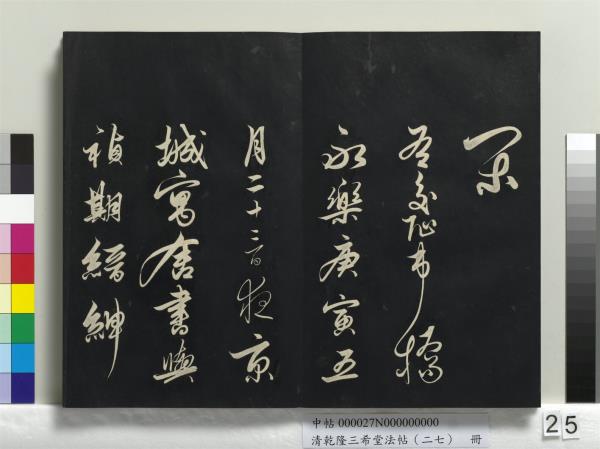 閑
交阯市橋
永樂庚寅五
月二十三日夜京
城寓舍書與
禎期縉紳
中帖 000027N000000000
清乾隆三希堂法帖（二七） 冊
25